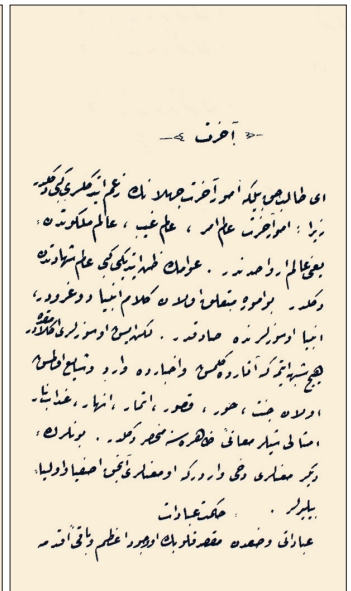 آخرت
ای طالب حق بیلکه امور آخرت جهلانك زعم ایتدکلری کبی دکلدر
زیرا : امور آخرت عالم امر ، عالم غیب ، عالم ملکوتدن
یعنی عالم ارواحدندر . عوامك ظن ایتدیکی کبی عالم شهادتدن
دکلدر بو اموره متعلق اولان کلام انبیا دوغرودر،
انبیا سوزلرنده صادقدر .
هیچ شبهه ایتمه که آثارده کلمش و اخبارده وارد
اولان جنت ، حور ، قصور ، اثمار ، انهار ، عذاب نار
امثالی شیلر معانئ ظاهره سنه منحصر دکلدر . بونلرك
دیکر معنالری دخی واردرکه او معنالری آنجق اصفیا و اولیا
بیلیرلر .
حکمت عبادات
عباداتی وضعدن مقصد قلوبك او وجود اعظم و باقی